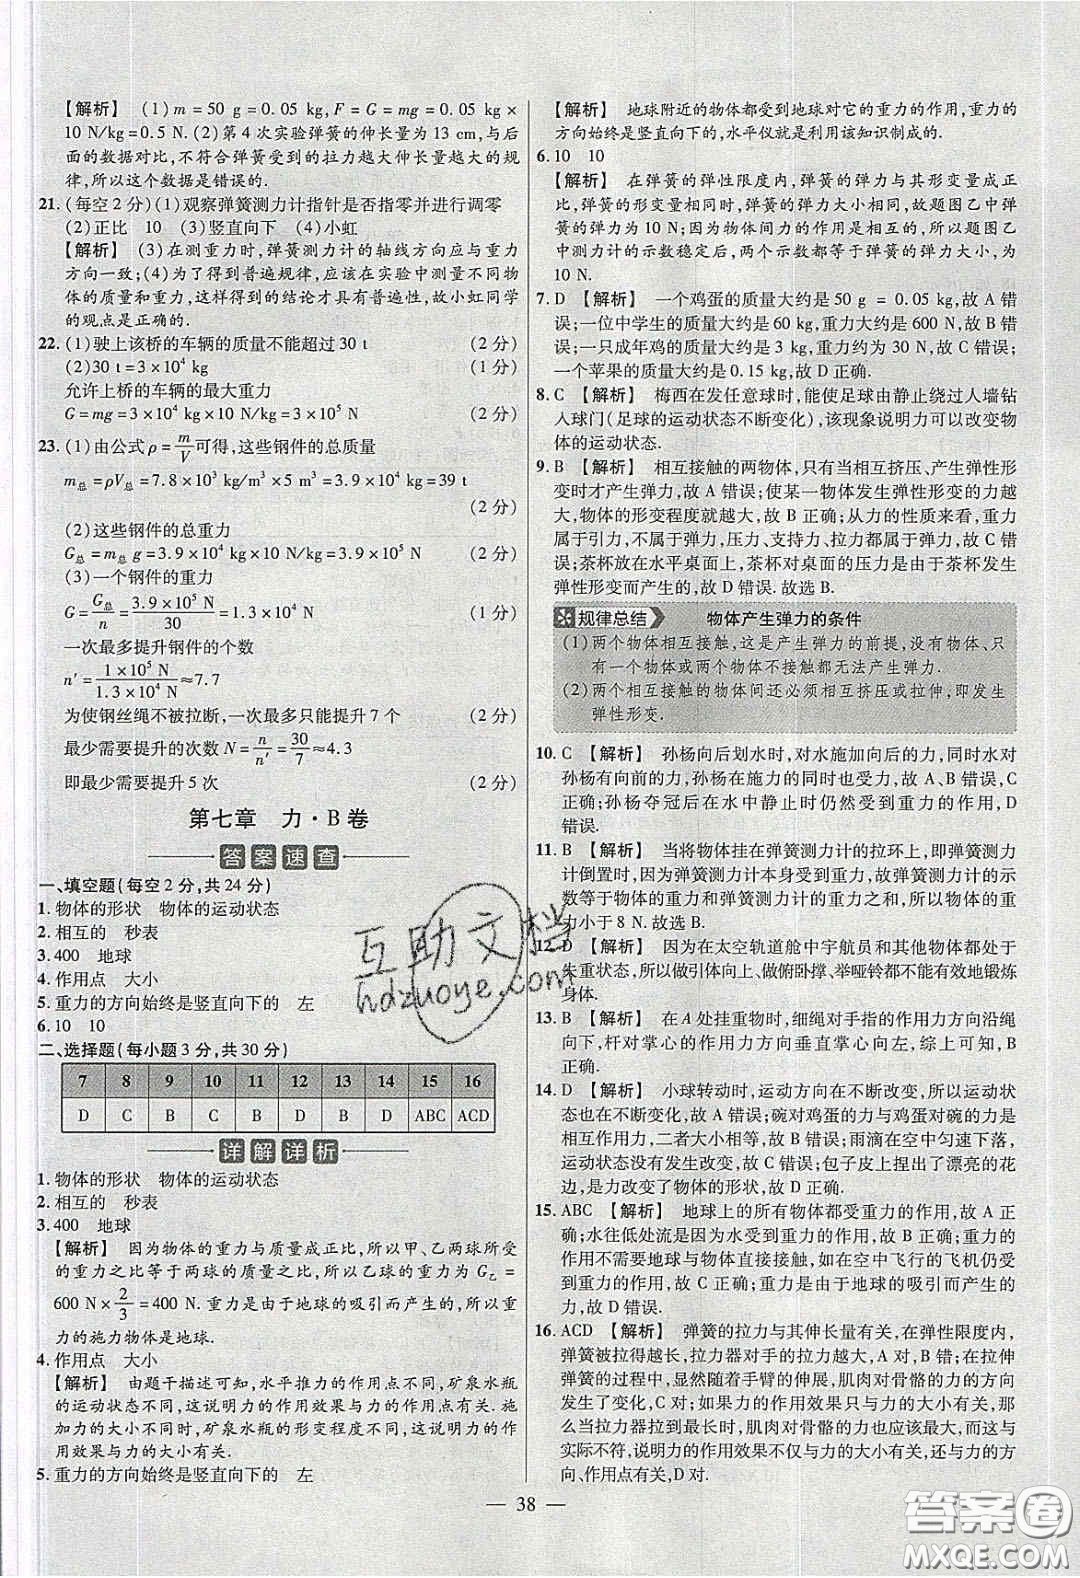 【解析】 (1) m = 50 g = 0. 05 kg, F = G = mg = 0. 05 kg ×
10 N/kg = 0. 5 N. (2) 第 4 次实验弹簧的伸长量为 13 cm, 与后
面的数据对比, 不符合弹簧受到的拉力越大伸长量越大的规
律, 所以这个数据是错误的.
21. (每空 2 分) (1) 观察弹簧测力计指针是否指零并进行调零
(2) 正比 10 (3) 竖直向下 (4) 小虹
【解析】 (3) 在测重力时, 弹簧测力计的轴线方向应与重力
方向一致; (4) 为了得到普遍规律, 应该在实验中测量不同物
体的质量和重力, 这样得到的结论才具有普遍性, 故小虹同学
的观点是正确的.
22. (1) 驶上该桥的车辆的质量不能超过 30 t (2 分)
(2) 30 t = 3 × 10⁴ kg (1 分)
允许上桥的车辆的最大重力
G = mg = 3 × 10⁴ kg × 10 N/kg = 3 × 10⁵ N (2 分)
23. (1) 由公式 ρ = m/V 可得, 这些钢件的总质量
m总 = ρV总 = 7. 8 × 10³ kg/m³ × 5 m³ = 3. 9 × 10⁴ kg = 39 t
(2 分)
(2) 这些钢件的总重力
G总 = m总 g = 3. 9 × 10⁴ kg × 10 N/kg = 3. 9 × 10⁵ N (2 分)
(3) 一个钢件的重力
G = G总/n = 3. 9 × 10⁵ N/30 = 1. 3 × 10⁴ N (1 分)
一次最多提升钢件的个数
n′ = 1 × 10⁵ N/1. 3 × 10⁴ N ≈ 7. 7
为使钢丝绳不被拉断, 一次最多只能提升 7 个 (2 分)
最少需要提升的次数 N = n/n′ = 30/7 ≈ 4. 3
即最少需要提升 5 次 (2 分)
第七章 力 · B 卷
答案速查
一、填空题 (每空 2 分, 共 24 分)
1. 物体的形状 物体的运动状态
2. 相互的 秒表
3. 400 地球
4. 作用点 大小
5. 重力的方向始终是竖直向下的 左
6. 10 10
二、选择题 (每小题 3 分, 共 30 分)
7 8 9 10 11 12 13 14 15 16
D C B C B D B D ABC ACD
详解详析
1. 物体的形状 物体的运动状态
2. 相互的 秒表
3. 400 地球
【解析】 因为物体的重力与质量成正比, 所以甲、乙两球所受
的重力之比等于两球的质量之比, 所以乙球的重力为 G乙 =
600 N × 2/3 = 400 N. 重力是由于地球的吸引而产生的, 所以重
力的施力物体是地球.
4. 作用点 大小
【解析】 由题干描述可知, 水平推力的作用点不同, 矿泉水瓶
的运动状态不同, 这说明力的作用效果与力的作用点有关. 施
加力的大小不同, 矿泉水瓶的形变程度不同, 这说明力的作
用效果与力的大小有关.
5. 重力的方向始终是竖直向下的 左
【解析】 地球附近的物体都受到地球对它的重力的作用, 重力
的方向始终是竖直向下的, 水平仪就是利用该知识制成的.
6. 10 10
【解析】 在弹簧的弹性限度内, 弹簧的弹力与其形变量成正
比, 因为题图甲中弹簧的弹力为 10 N, 所以题图乙中弹簧的
弹力为 10 N; 因为物体间力的作用是相互的, 故题图乙
中测力计的示数稳定后, 两个示数都等于弹簧的弹力大小, 为
10 N.
7. D 【解析】 一个鸡蛋的质量大约是 50 g = 0. 05 kg, 故 A 错
误; 一位中学生的质量大约是 60 kg, 重力大约是 600 N, 故 B 错
误; 一只成年鸡的质量大约是 3 kg, 重力约为 30 N, 故 C 错误;
一个苹果的质量大约是 0. 15 kg, 故 D 正确.
8. C 【解析】 梅西在发任意球时, 能使足球由静止绕过人墙钻
入球门 (足球的运动状态不断变化), 该现象说明力可以改变物
体的运动状态.
9. B 【解析】 相互接触的两物体, 只有当相互挤压、产生弹性形
变时才产生弹力, 故 A 错误; 使某一物体发生弹性形变的力越
大, 物体的形变程度就越大, 故 B 正确; 从力的性质来看, 重力
属于引力, 不属于弹力, 压力、支持力、拉力都属于弹力, 故 C 错
误; 茶杯放在水平桌面上, 茶杯对桌面的压力是由于茶杯发生
弹性形变而产生的, 故 D 错误. 故选 B.
规律总结 物体产生弹力的条件
(1) 两个物体相互接触, 这是产生弹力的前提, 没有物体、只
有一个物体或两个物体不接触都无法产生弹力.
(2) 两个相互接触的物体间还必须相互挤压或拉伸, 即发生
弹性形变.
10. C 【解析】 孙杨向后划水时, 对水施加向后的力, 同时水对
孙杨有向前的力, 孙杨在施力的同时也受力, 故 A、B 错误, C
正确; 孙杨夺冠后在水中静止时仍然受到重力的作用, 故 D
错误.
11. B 【解析】 当将物体挂在弹簧测力计的拉环上, 即弹簧测力
计倒置时, 因为弹簧测力计本身受到重力, 故弹簧测力计的示
数等于物体的重力和弹簧测力计的重力之和, 所以物体的重
力小于 8 N. 故选 B.
12. D 【解析】 因为在太空轨道舱中宇航员和其他物体都处于
失重状态, 所以做引体向上、做俯卧撑、举哑铃都不能有效地锻炼
身体.
13. B 【解析】 在 A 处挂重物时, 细绳对手指的作用力方向沿绳
向下, 杆对掌心的作用力方向垂直掌心向左, 综上可知, B
正确.
14. D 【解析】 小球转动时, 运动方向在不断改变, 所以运动状
态也在不断变化, 故 A 错误; 碗对鸡蛋的力与鸡蛋对碗的力是
相互作用力, 二者大小相等, 故 B 错误; 雨滴在空中匀速下落,
运动状态没有发生改变, 故 C 错误; 包子皮上捏出了漂亮的花
边, 是力改变了物体的形状, 所以 D 正确.
15. ABC 【解析】 地球上的所有物体都受重力的作用, 故 A 正
确; 水往低处流是由于受到重力的作用, 故 B 正确; 重力的
作用不需要地球与物体直接接触, 如在空中飞行的飞机仍受
到重力的作用, 故 C 正确; 重力是由于地球的吸引而产生的
力, 故 D 错误.
16. ACD 【解析】 弹簧的拉力与其伸长量有关, 在弹性限度内,
弹簧被拉得越长, 拉力器对手的拉力越大, A 对, B 错; 在拉伸
弹簧的过程中, 显然随着手臂的伸展, 肌肉对骨骼的力的大小
发生了变化, C 对; 如果力的作用效果只与力的大小有关, 那
么当拉力器拉到最长时, 肌肉对骨骼的力也应该最大, 而这与
实际不符, 说明力的作用效果不仅与力的大小有关, 还与力的方
向、作用点有关, D 对.
— 38 —
互助文档
hdzuoye.com
答案圈
MXQE.COM